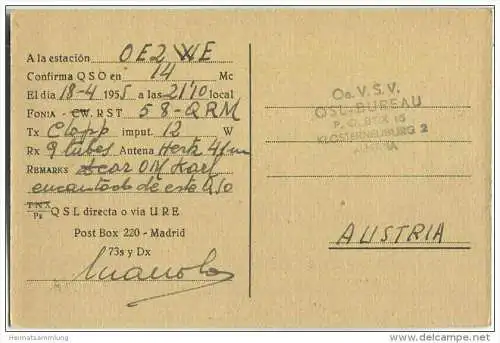 A la estación OE2WE
Confirma QSO en 14 Mc
El día 18-4 1955 a las 21'10 local
FONIA - CW. RST 58-QRM
Tx Clapp imput. 12 W
Rx 9 tubes Antena Hertz 41 m
REMARKS Dear OM Karl
encantado de este QSO
TNX
Ps QSL directa o via URE
Post Box 220 - Madrid
73s y Dx
Manolo
Oe. V. S. V.
QSL-BUREAU
P. O. BOX 15
KLOSTERNEUBURG 2
AUSTRIA
AUSTRIA
Heimatsammlung
http://www.ansichtskarten-center.de